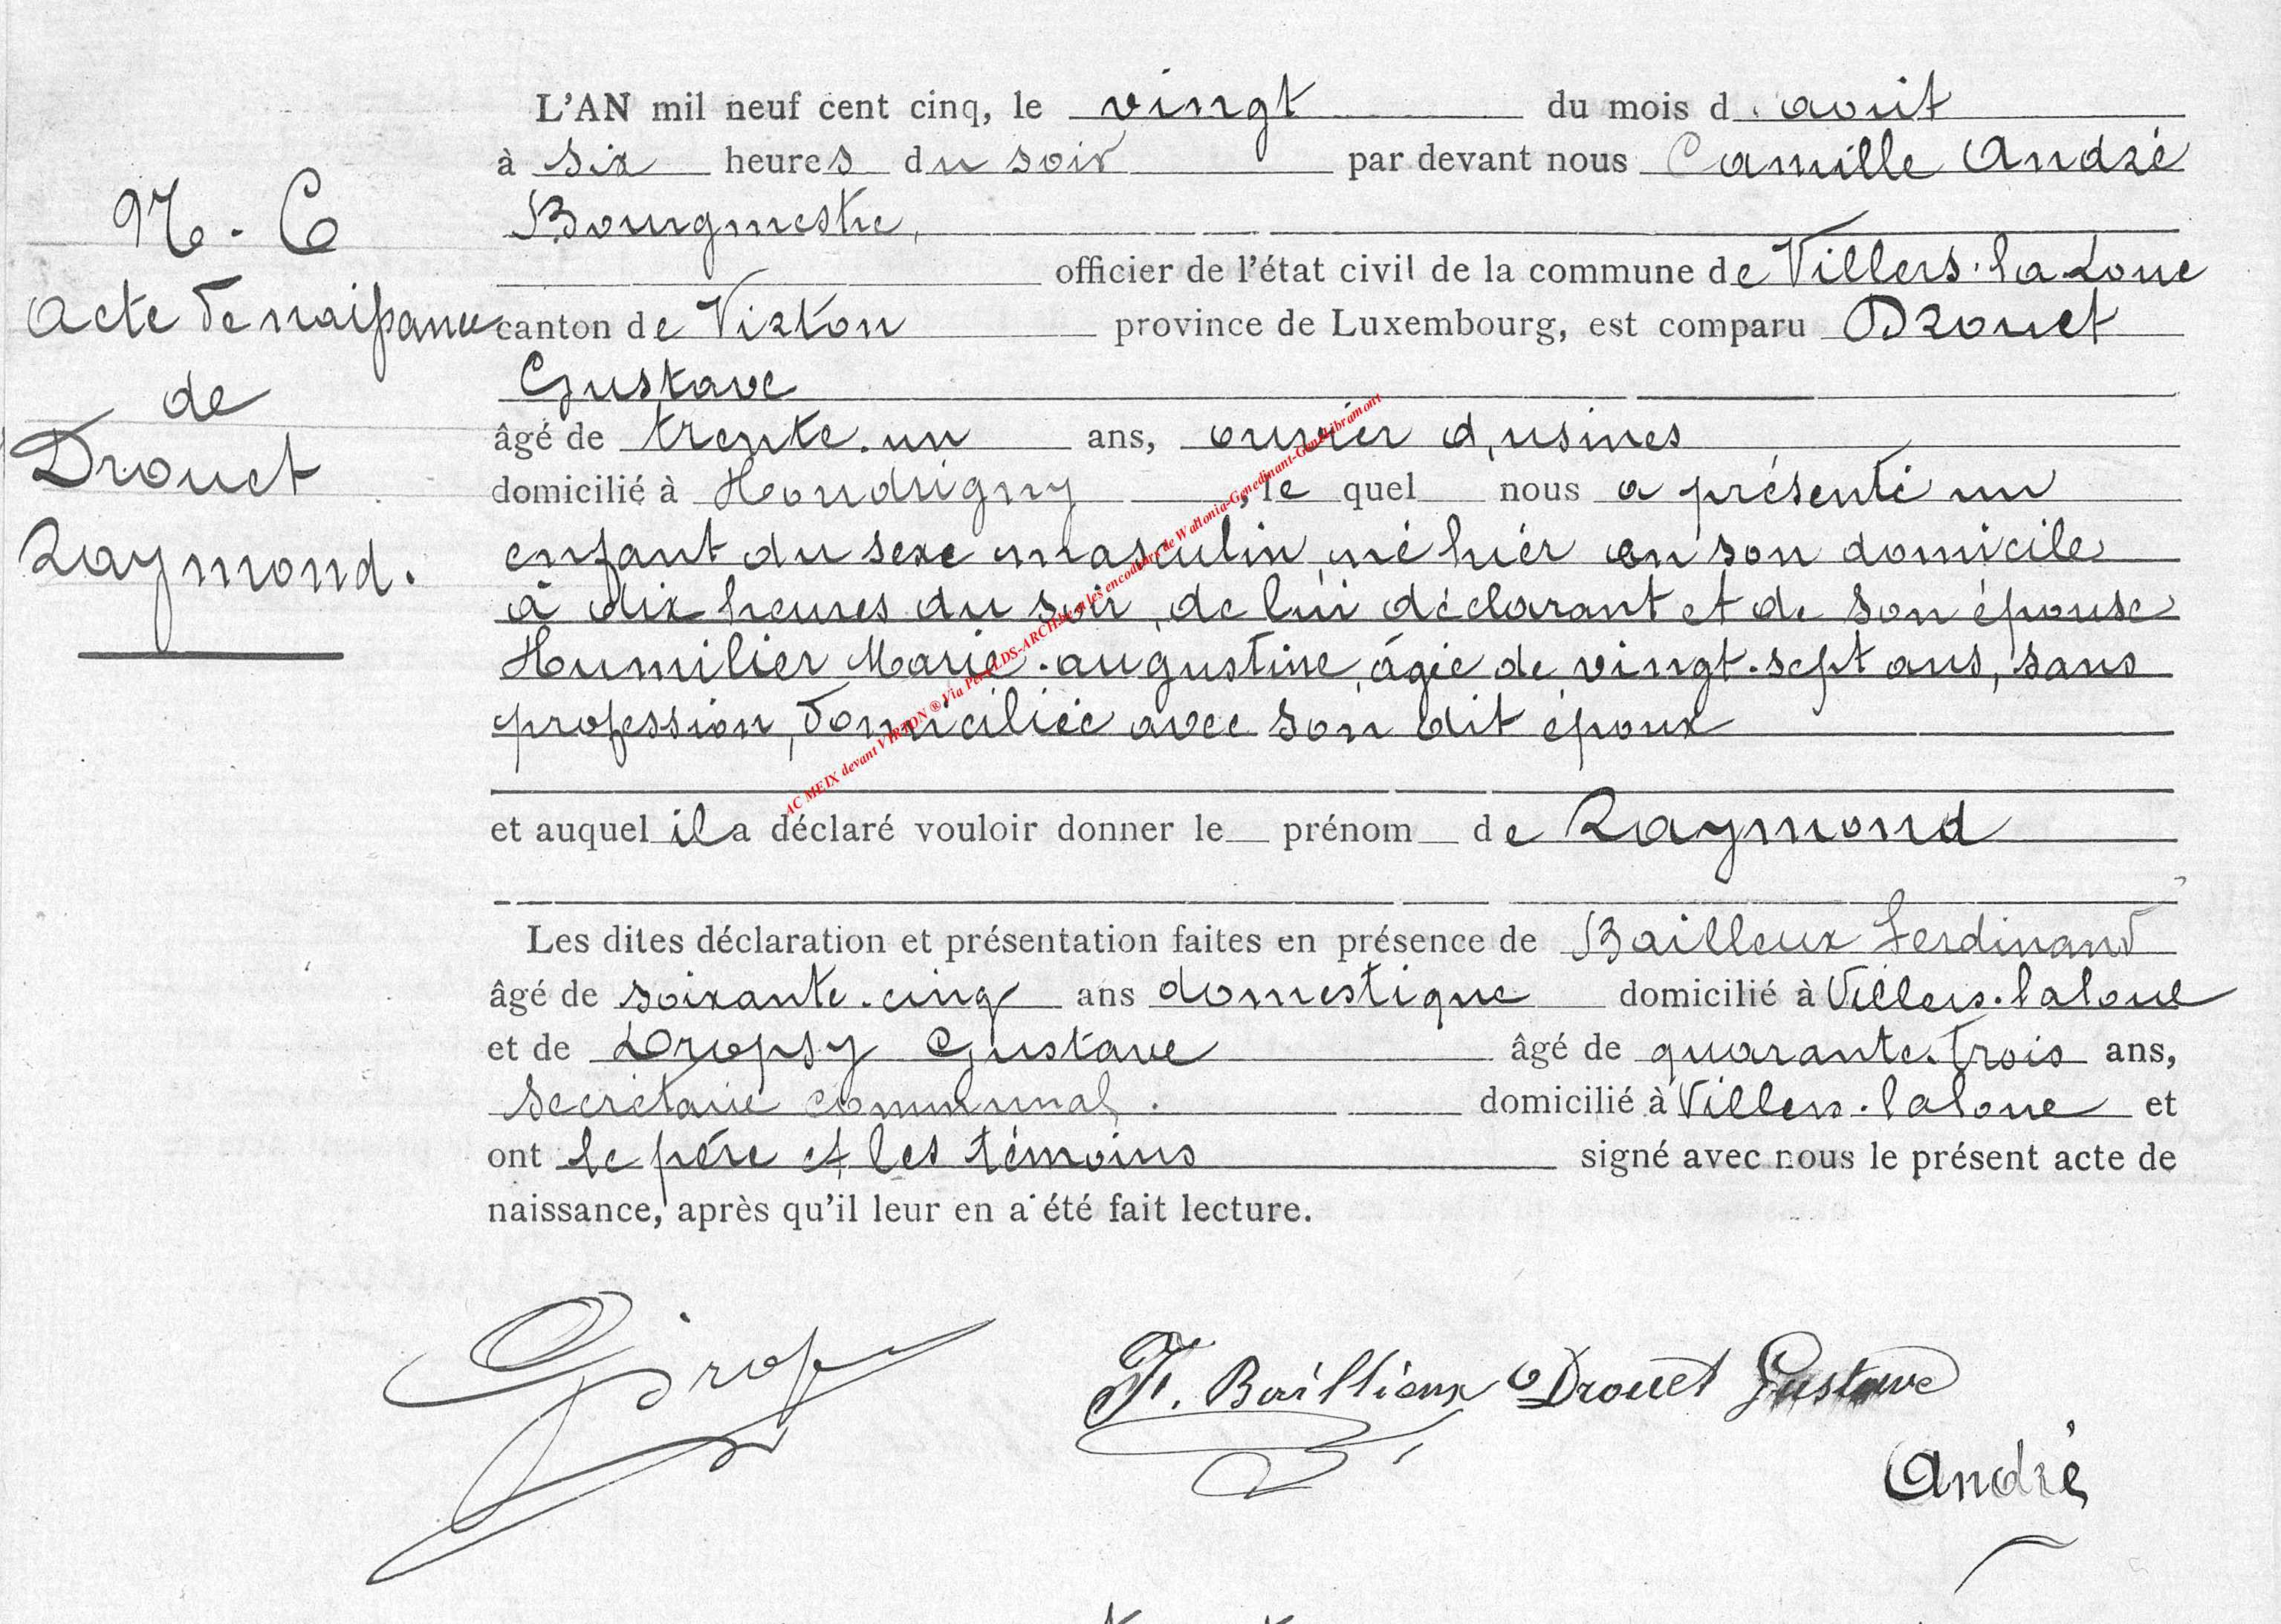 N. 6
Acte de naissance
de
Drouet
Raymond.
L'AN mil neuf cent cinq, le vingt du mois d'août
à six heures du soir par devant nous Camille André
Bourgmestre,
officier de l'état civil de la commune de Villers-la-Loue
canton de Virton province de Luxembourg, est comparu Drouet
Gustave
âgé de trente-un ans, ouvrier d'usines
domicilié à Houdrigny, le quel nous a présenté un
enfant du sexe masculin, né hier en son domicile
à dix heures du soir, de lui déclarant et de son épouse
Humilier Marie-augustine, âgée de vingt-sept ans, sans
profession, domiciliée avec son dit époux
et auquel il a déclaré vouloir donner le prénom de Raymond
Les dites déclaration et présentation faites en présence de Bailleux Ferdinand
âgé de soixante-cinq ans domestique domicilié à Villers-la loue
et de Dropsy Gustave âgé de quarante-trois ans,
secrétaire communal. domicilié à Villers-la loue et
ont le père et les témoins signé avec nous le présent acte de
naissance, après qu'il leur en a été fait lecture.
F. Baillieux Drouet Gustave
André
AC MEIX devant VIRTON ® Via Pers LDS-ARCH.be et les encodeurs de Wallonia-Genedinant-GeneLibramont